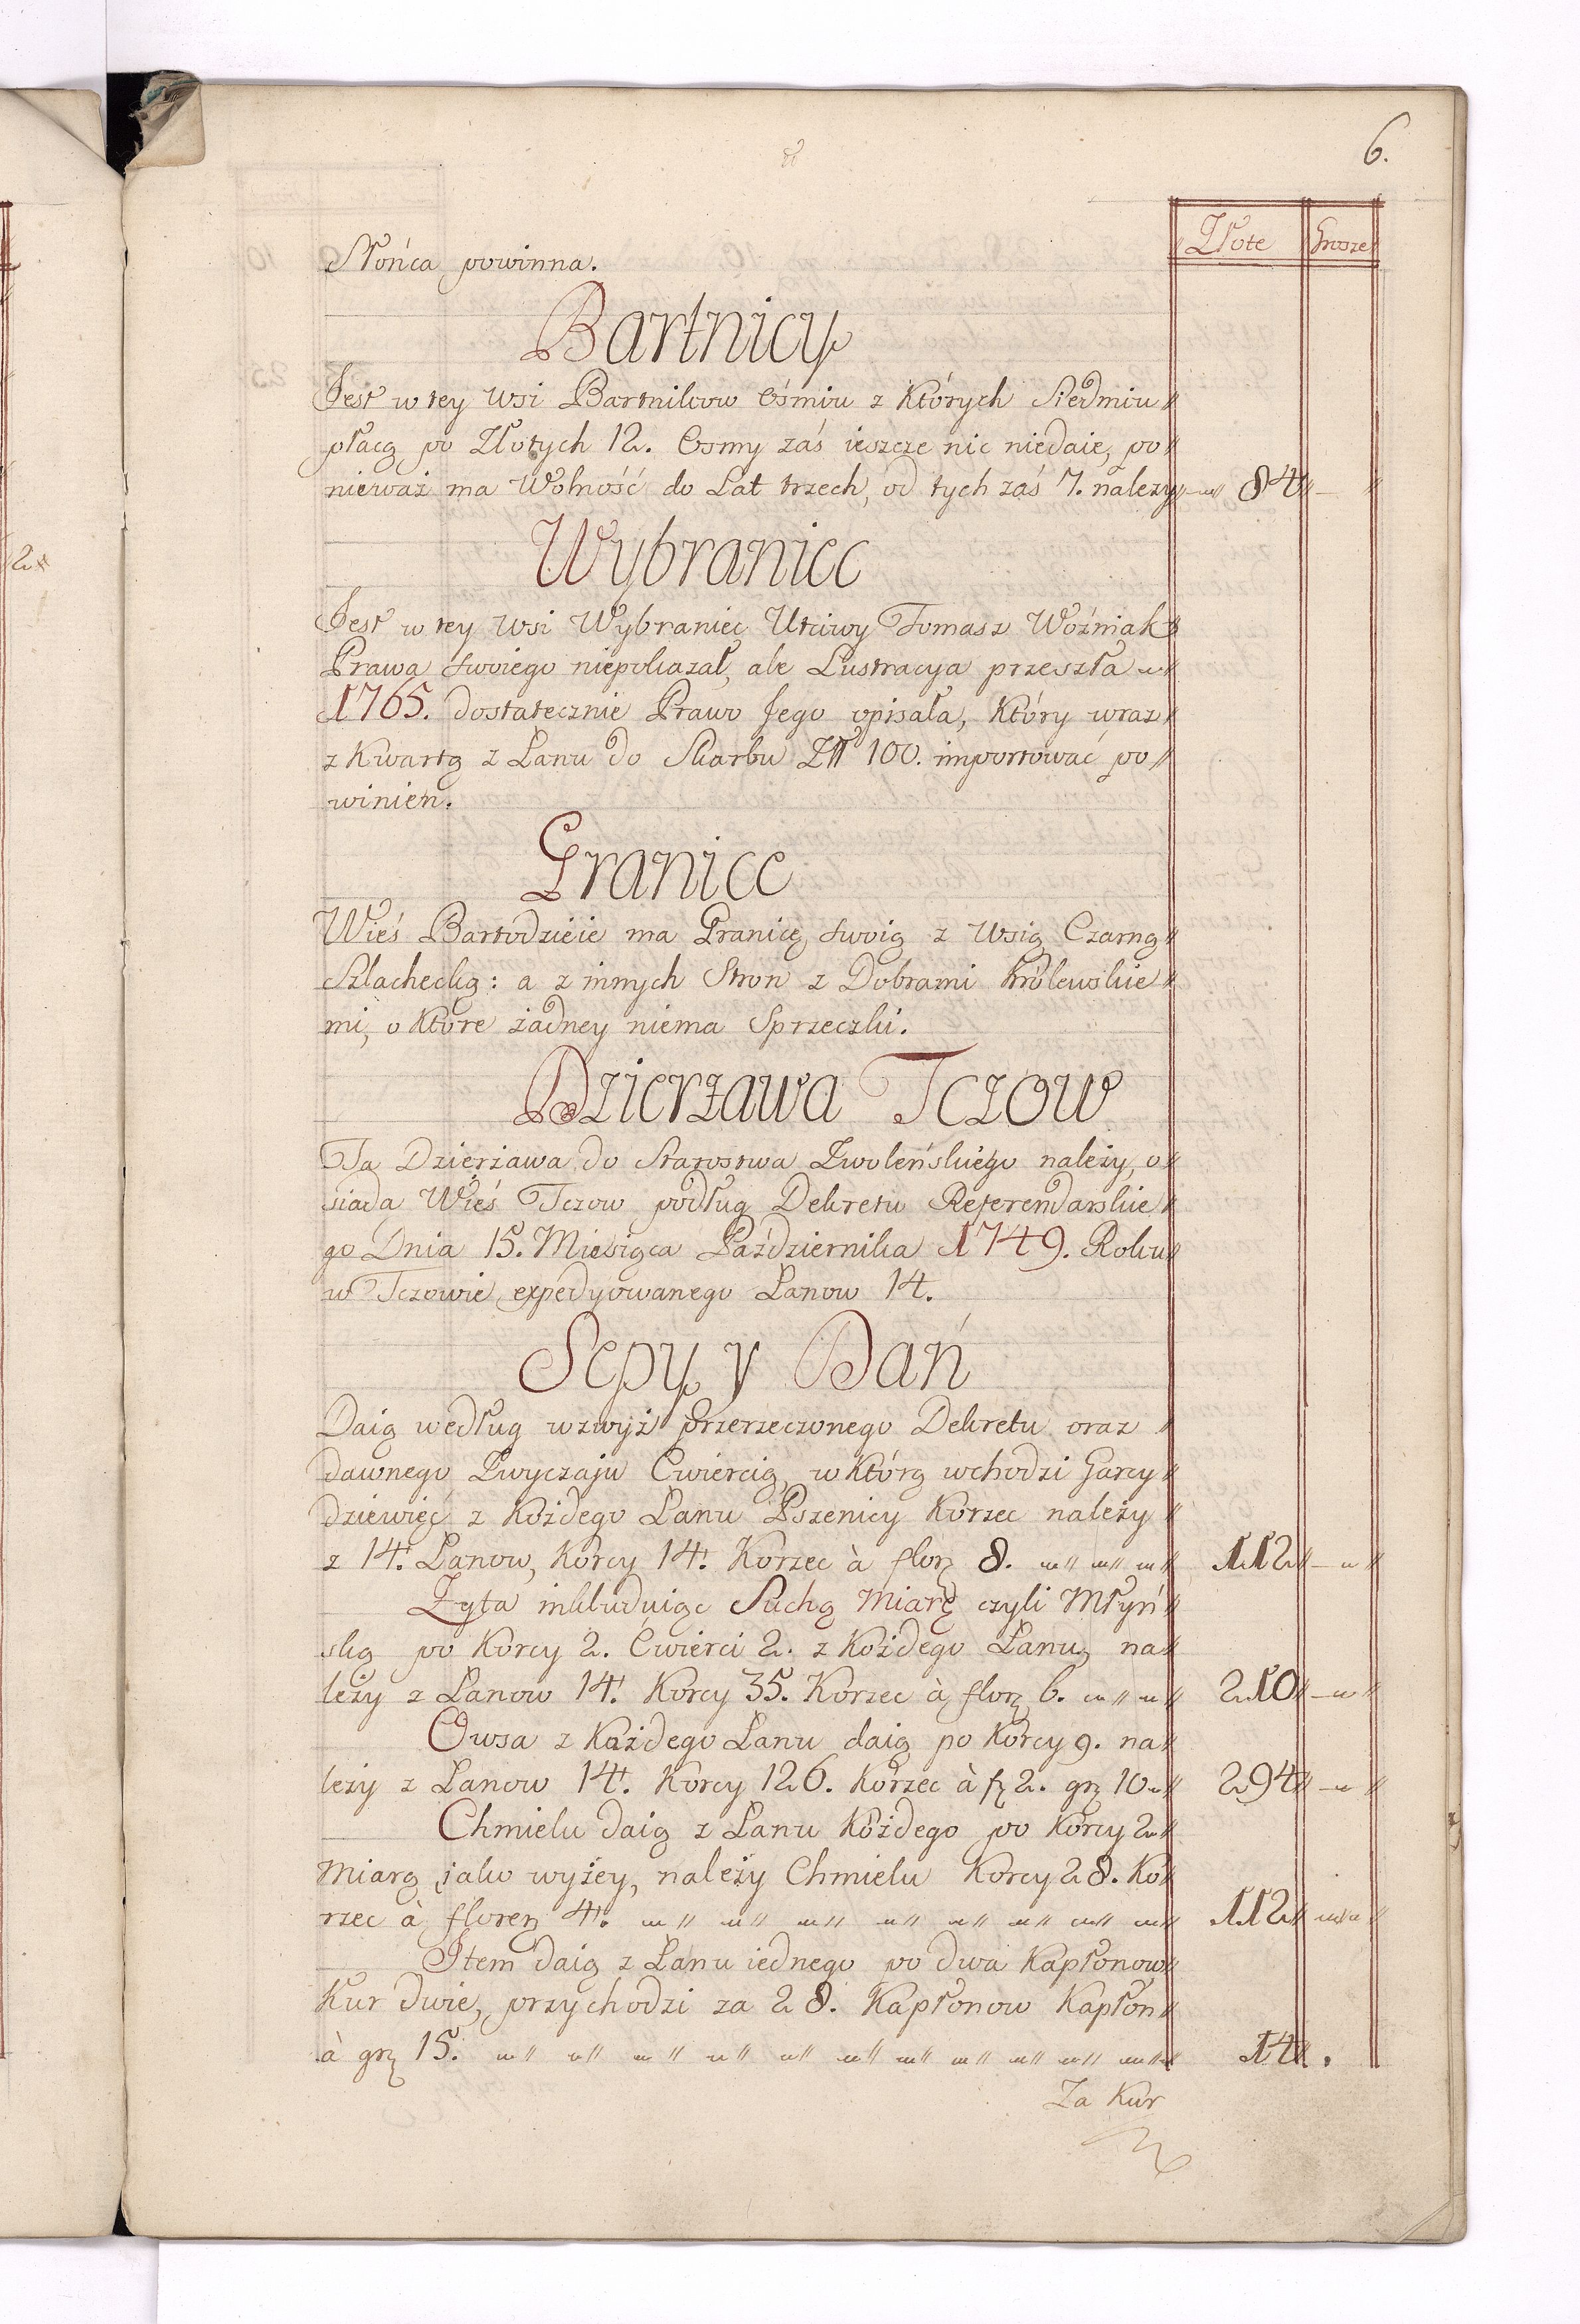 6.
Złote Grosze
Słońca powinna.
Bartnicy
Jest w tey Wsi Bartnikow Ośmiu z Których Siedmiu //
płacą po Złotych 12. Osmy zaś ieszcze nic niedaie, po //
nieważ ma Wolność do Lat trzech, od tych zaś 7. należy // 84 //
Wybraniec
Jest w tey Wsi Wybraniec Utciwy Tomasz Woźniak
Prawa swoiego niepokazał, ale Lustracya przeszła //
1765. dostatecznie Prawo Jego opisała, Który wraz //
z Kwartą z Łanu do Skarbu Złł 100. importować po //
winien.
Granice
Wieś Bartodzieie ma Granicę swoią z Wsią Czarną //
Szlachecką: a z innych Stron z Dobrami Królewskie //
mi, o Które żadney niema Sprzeczki.
Dzierżawa Tczow
Ta Dzierżawa do Starostwa Zwoleńskiego należy, o //
siada Wieś Tczow podług Dekretu Referendarskie //
go Dnia 15. Miesiąca Października 1749. Roku //
w Tczowie expedyowanego Łanow 14.
Sepy y Dań
Daią według wzwyż przerzeczonego Dekretu oraz //
dawnego Zwyczaju Cwiercią, w Którą wchodzi Garcy //
dziewięć z Każdego Łanu Pszenicy Korzec należy //
z 14. Łanow, Korcy 14. Korzec à flor 8. // 112 //
Zyta inkluduiąc Suchą Miarę czyli Młyń //
ską po Korcy 2. Ćwierci 2. z Każdego Łanu, na //
leży z Łanow 14. Korcy 35. Korzec à flor 6. // 210 //
Owsa z Każdego Łanu daią po Korcy 9. na //
leży z Łanow 14. Korcy 126. Korzec à f 2. gr 10 // 294 //
Chmielu daią z Łanu Każdego po Korcy 2 //
Miarą jako wyżey, należy Chmielu Korcy 28. Ko //
rzec à floren 4. // 112 //
Item daią z Łanu iednego po dwa Kapłonow //
Kur dwie, przychodzi za 28. Kapłonow Kapłon //
à gr 15. // 14 //
Za Kur